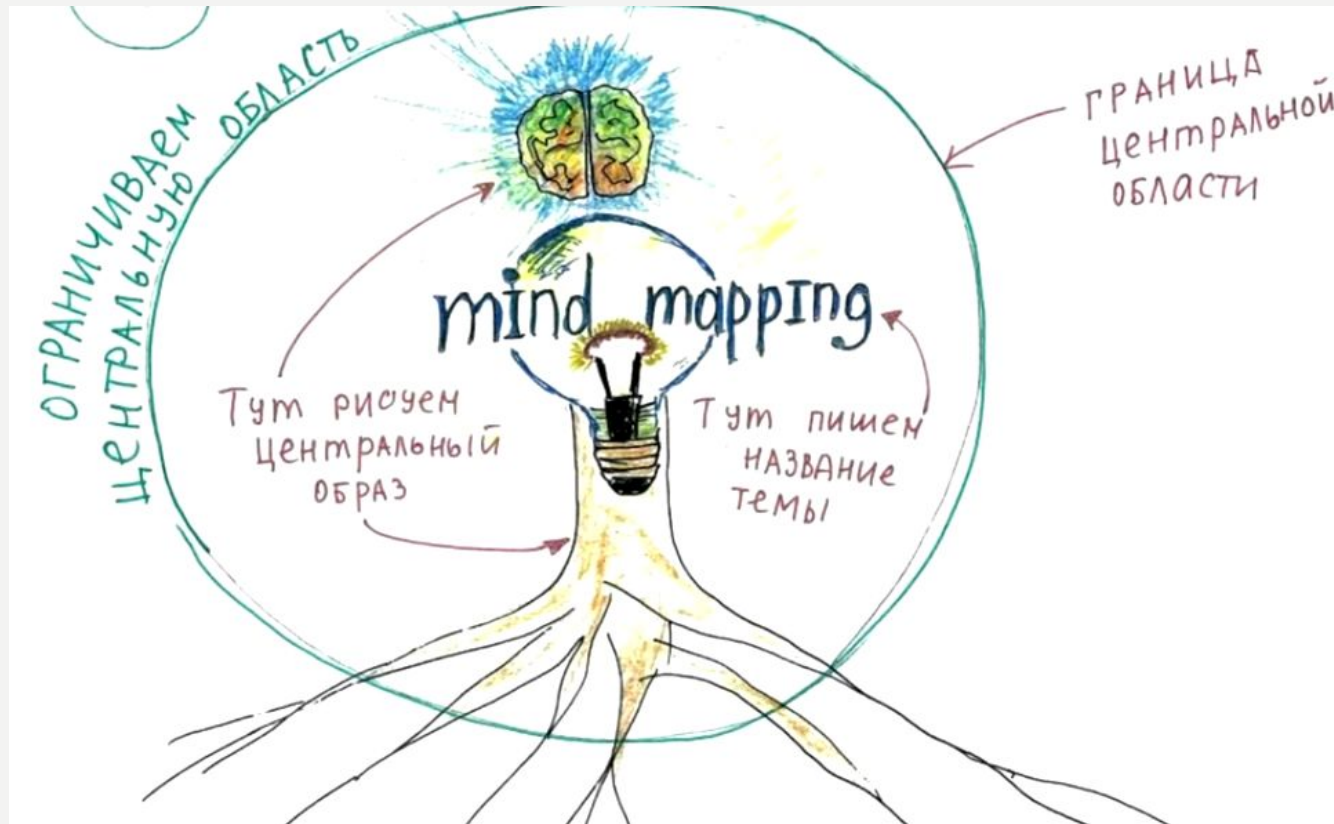 ОГРАНИЧИВАЕМ
ЦЕНТРАЛЬНУЮ ОБЛАСТЬ
ГРАНИЦА
ЦЕНТРАЛЬНОЙ
ОБЛАСТИ
mind mapping
Тут рисуем
центральный
ОБРАЗ
Тут пишем
НАЗВАНИе
темы